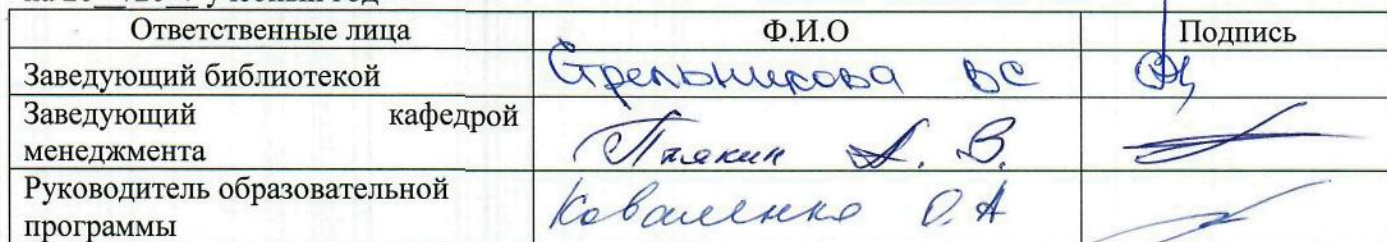 учебный год
Ответственные лица Ф.И.О Подпись
Заведующий библиотекой Стрельникова ВС
Заведующий кафедрой
менеджмента А. В.
Руководитель образовательной
программы Коваленко О.А